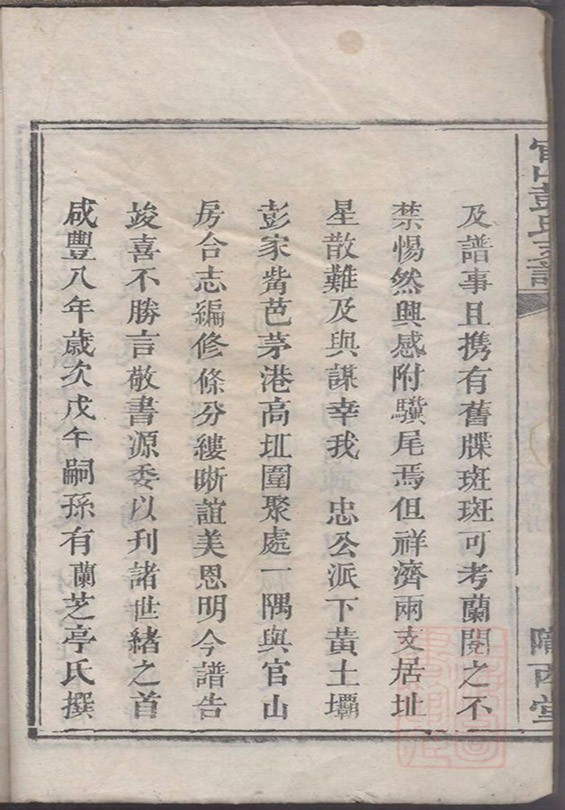 官山彭氏支譜
隴西堂
及譜事且攜有舊牒斑斑可考蘭閱之不
禁惕然興感附驥尾焉但祥濟兩支居址
星散難及與謀幸我 忠公派下黃土壩
彭家觜芭茅港高坵圍聚處一隅與官山
房合志編修條分縷晰誼美恩明今譜告
竣喜不勝言敬書源委以刊諸世緒之首
咸豐八年歲次戊午嗣孫有蘭芝亭氏撰